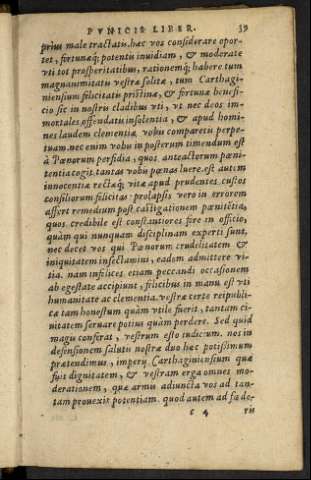 PVNICIS LIBER. 39
prius male tractatis. hæc vos considerare opor-
tet, fortunæq; potentis inuidiam, & moderate
vti tot prosperitatibus, rationemq; habere tum
magnanimitatis vestræ solitæ, tum Carthagi-
niensium felicitatis pristinæ, & fortunæ benefi-
cio sic in nostris cladibus vti, vt nec deos im-
mortales offendatis insolentia, & apud homi-
nes laudem clementiæ vobis comparetis perpe-
tuam. nec enim vobis in posterum timendum est
à Pœnorum perfidia, quos anteactorum pœni-
tentia cogit tantas vobis pœnas luere. est autem
innocentia rectæq; vitæ apud prudentes custos
consiliorum felicitas: prolapsis vero in errorem
affert remedium post castigationem pœnitẽtia,
quos credibile est constantiores fore in officio,
quàm qui nunquam disciplinam experti sunt,
nec decet vos qui Pœnorum crudelitatem &
iniquitatem insectamini, eadem admittere vi-
tia. nam infelices etiam peccandi occasionem
ab egestate accipiunt, felicibus in manu est vti
humanitate ac clementia. vestræ certe reipubli-
cæ tam honestum quàm vtile fuerit, tantam ci-
uitatem seruare potius quàm perdere. Sed quid
magis conferat, vestrum esto iudicium. nos in
defensionem salutis nostræ duo hæc potissimum
prætendimus, imperij Carthaginiensium quæ
fuit dignitatem, & vestram erga omnes mo-
derationem, quæ armis adiuncta vos ad tan-
tam prouexit potentiam. quod autem ad fœde-
c 4 ris